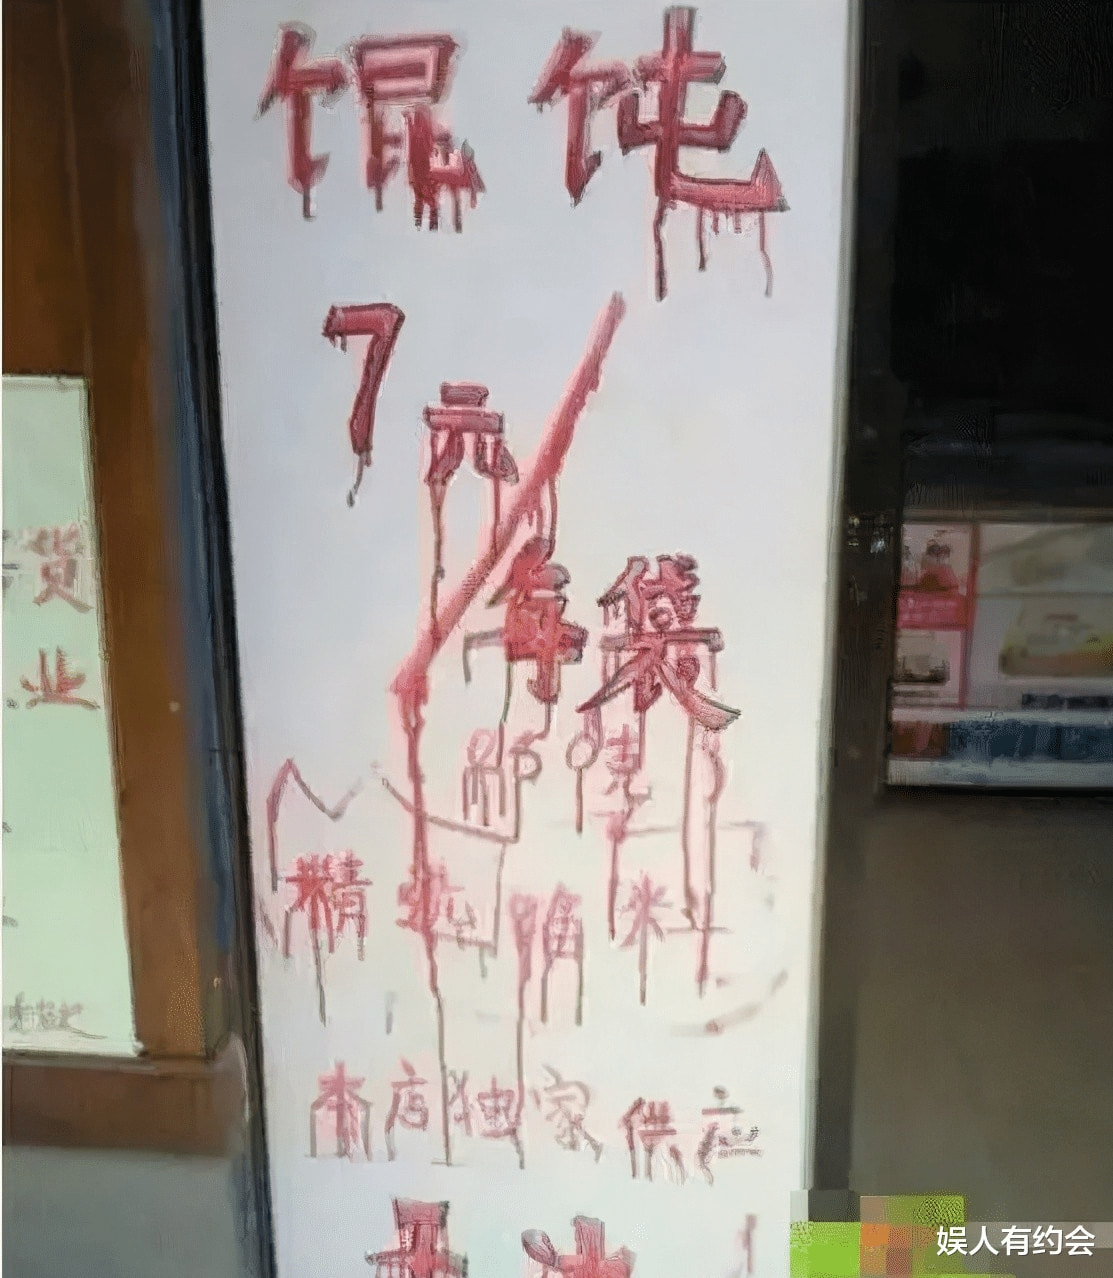 馄饨
7元/每袋
克
精 馅 米
本店独家供应
货
业
娱人有约会